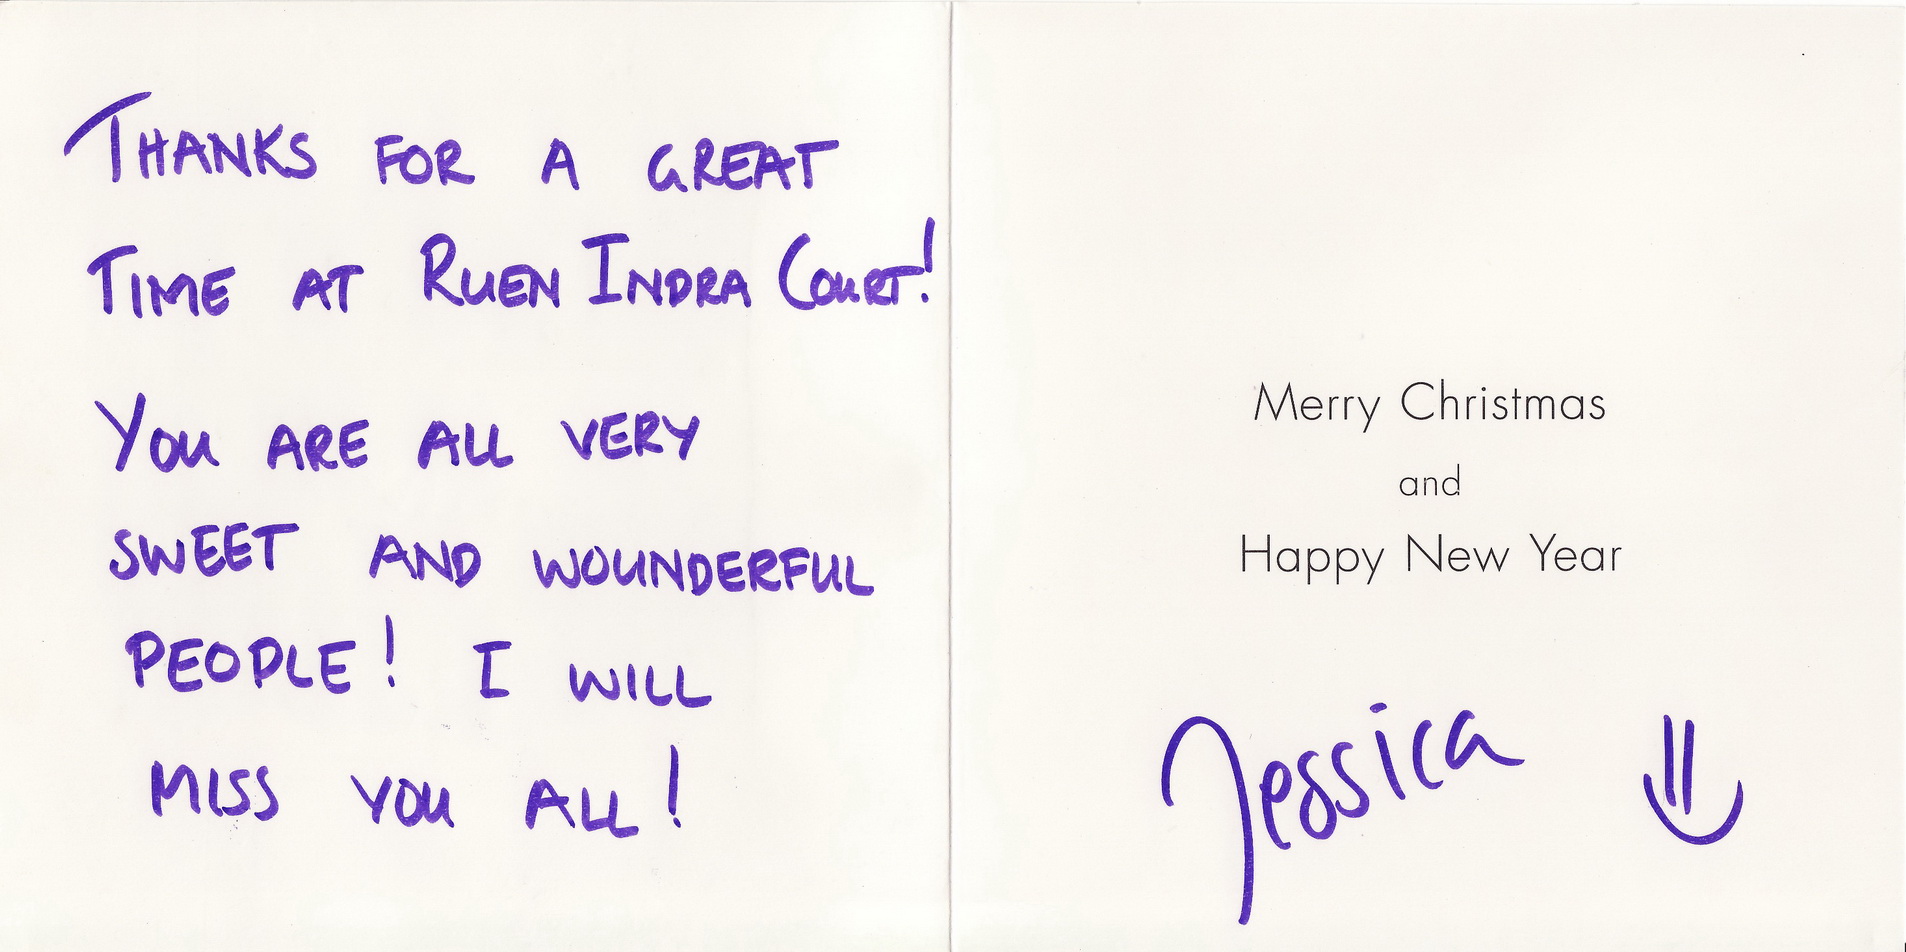 THANKS FOR A GREAT
TIME AT RUEN INDRA COURT!
YOU ARE ALL VERY
SWEET AND WOUNDERFUL
PEOPLE! I WILL
MISS YOU ALL!
Merry Christmas
and
Happy New Year
Jessica